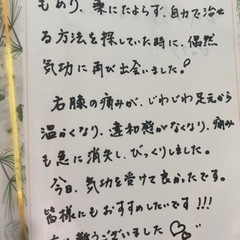 もあり、薬にたよらず、自力で治せ
る方法を探していた時に、偶然
気功に再び出会いました。
右腰の痛みが、じわじわ足元から
温かくなり、違和感がなくなり、痛み
も急に消失し、びっくりしました。
今日、気功を受けて良かったです。
皆様にもおすすめしたいです!!!
有り難うございました